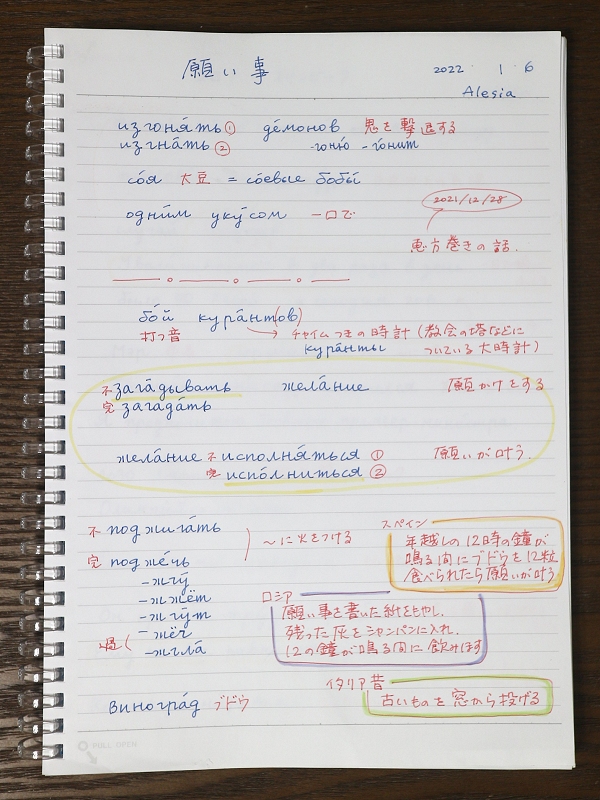 願い事
2022 1 6
Alesia
изгоня́ть① де́монов 鬼を撃退する
изгна́ть② -гоню́ -го́нит
со́я 大豆 = со́евые бобы́
одни́м уку́сом 一口で
2021/12/28
恵方巻きの話.
бо́й кура́нт(ов)
打つ音 → チャイムつきの時計(教会の塔などに
кура́нты ついている大時計)
不 зага́дывать жела́ние 願かけをする
完 загада́ть
жела́ние 不 исполня́ться ① 願いが叶う.
完 испо́лниться ②
不 поджига́ть
完 подже́чь
〜に火をつける
-жгу́
-жжёт
-жгу́т
過( -жёг
-жгла́
スペイン
年越しの12時の鐘が
鳴る間にブドウを12粒
食べられたら願いが叶う
ロシア
願い事を書いた紙を燃やし.
残った灰をシャンパンに入れ.
12の鐘が鳴る間に飲みほす
イタリア昔
古いものを窓から投げる
виногра́д ブドウ
PULL OPEN